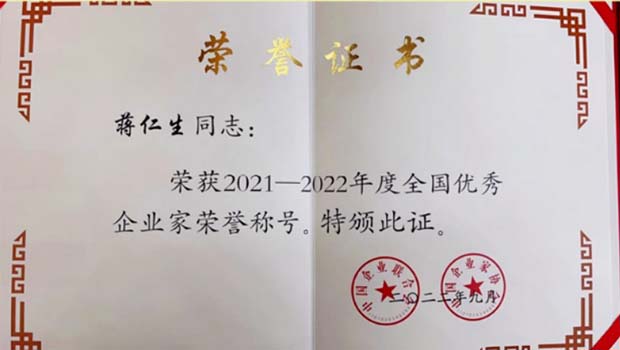 荣誉证书
蒋仁生同志：
荣获2021—2022年度全国优秀
企业家荣誉称号。特颁此证。
中国企业联合会
中国企业家协会
二〇二二年九月